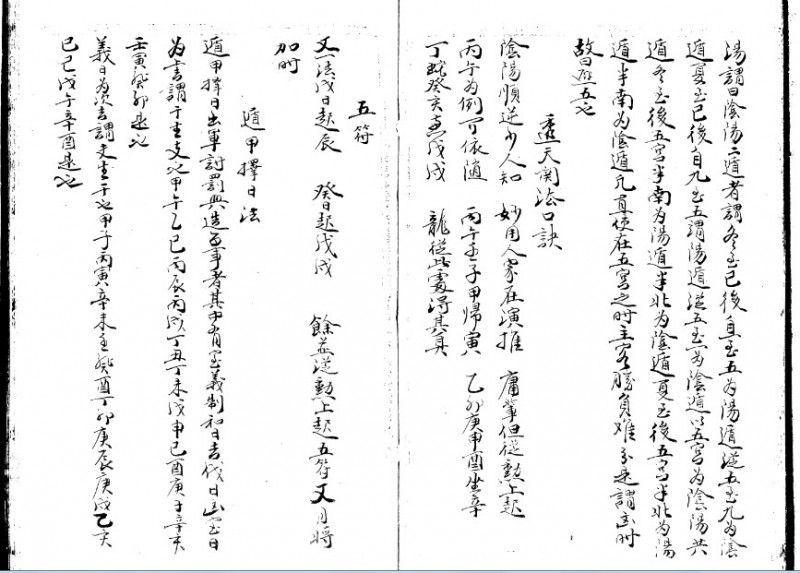 湯謂曰陰陽二遁者謂冬至已後自一至五为陽遁從五至九为陰
遁夏至已後自九至五謂陽遁從五至一为陰遁以五宮为陰陽共
遁冬至後五宮半南为陽遁半北为陰遁夏至後五宮半北为陽
遁半南为陰遁凡直使在五宮之时主客勝負难分是謂出时
故曰遊五也
透天関法口訣
陰陽順逆少人知 妙用人家在演推 庸輩但從勲上起
丙午为例可依随 丙午壬子甲帰寅 乙卯庚申酉坐辛
丁蛇癸亥 戊戌 龍從此處淂其真
五符
又一法戊日起辰 癸日起戊戌 餘並從勲上起五符又月将
加时
遁甲擇日法
遁甲擇日出軍討罰興造百事者其中有宝義制和日吉伐日凶宝日
为吉謂干生支也甲午乙巳丙辰丙戌丁丑丁未戊申己酉庚子辛亥
壬寅癸卯是也
義日为次吉謂支生干也甲子丙寅辛未壬 癸酉丁卯庚辰庚戌乙亥
己巳戊午辛酉是也